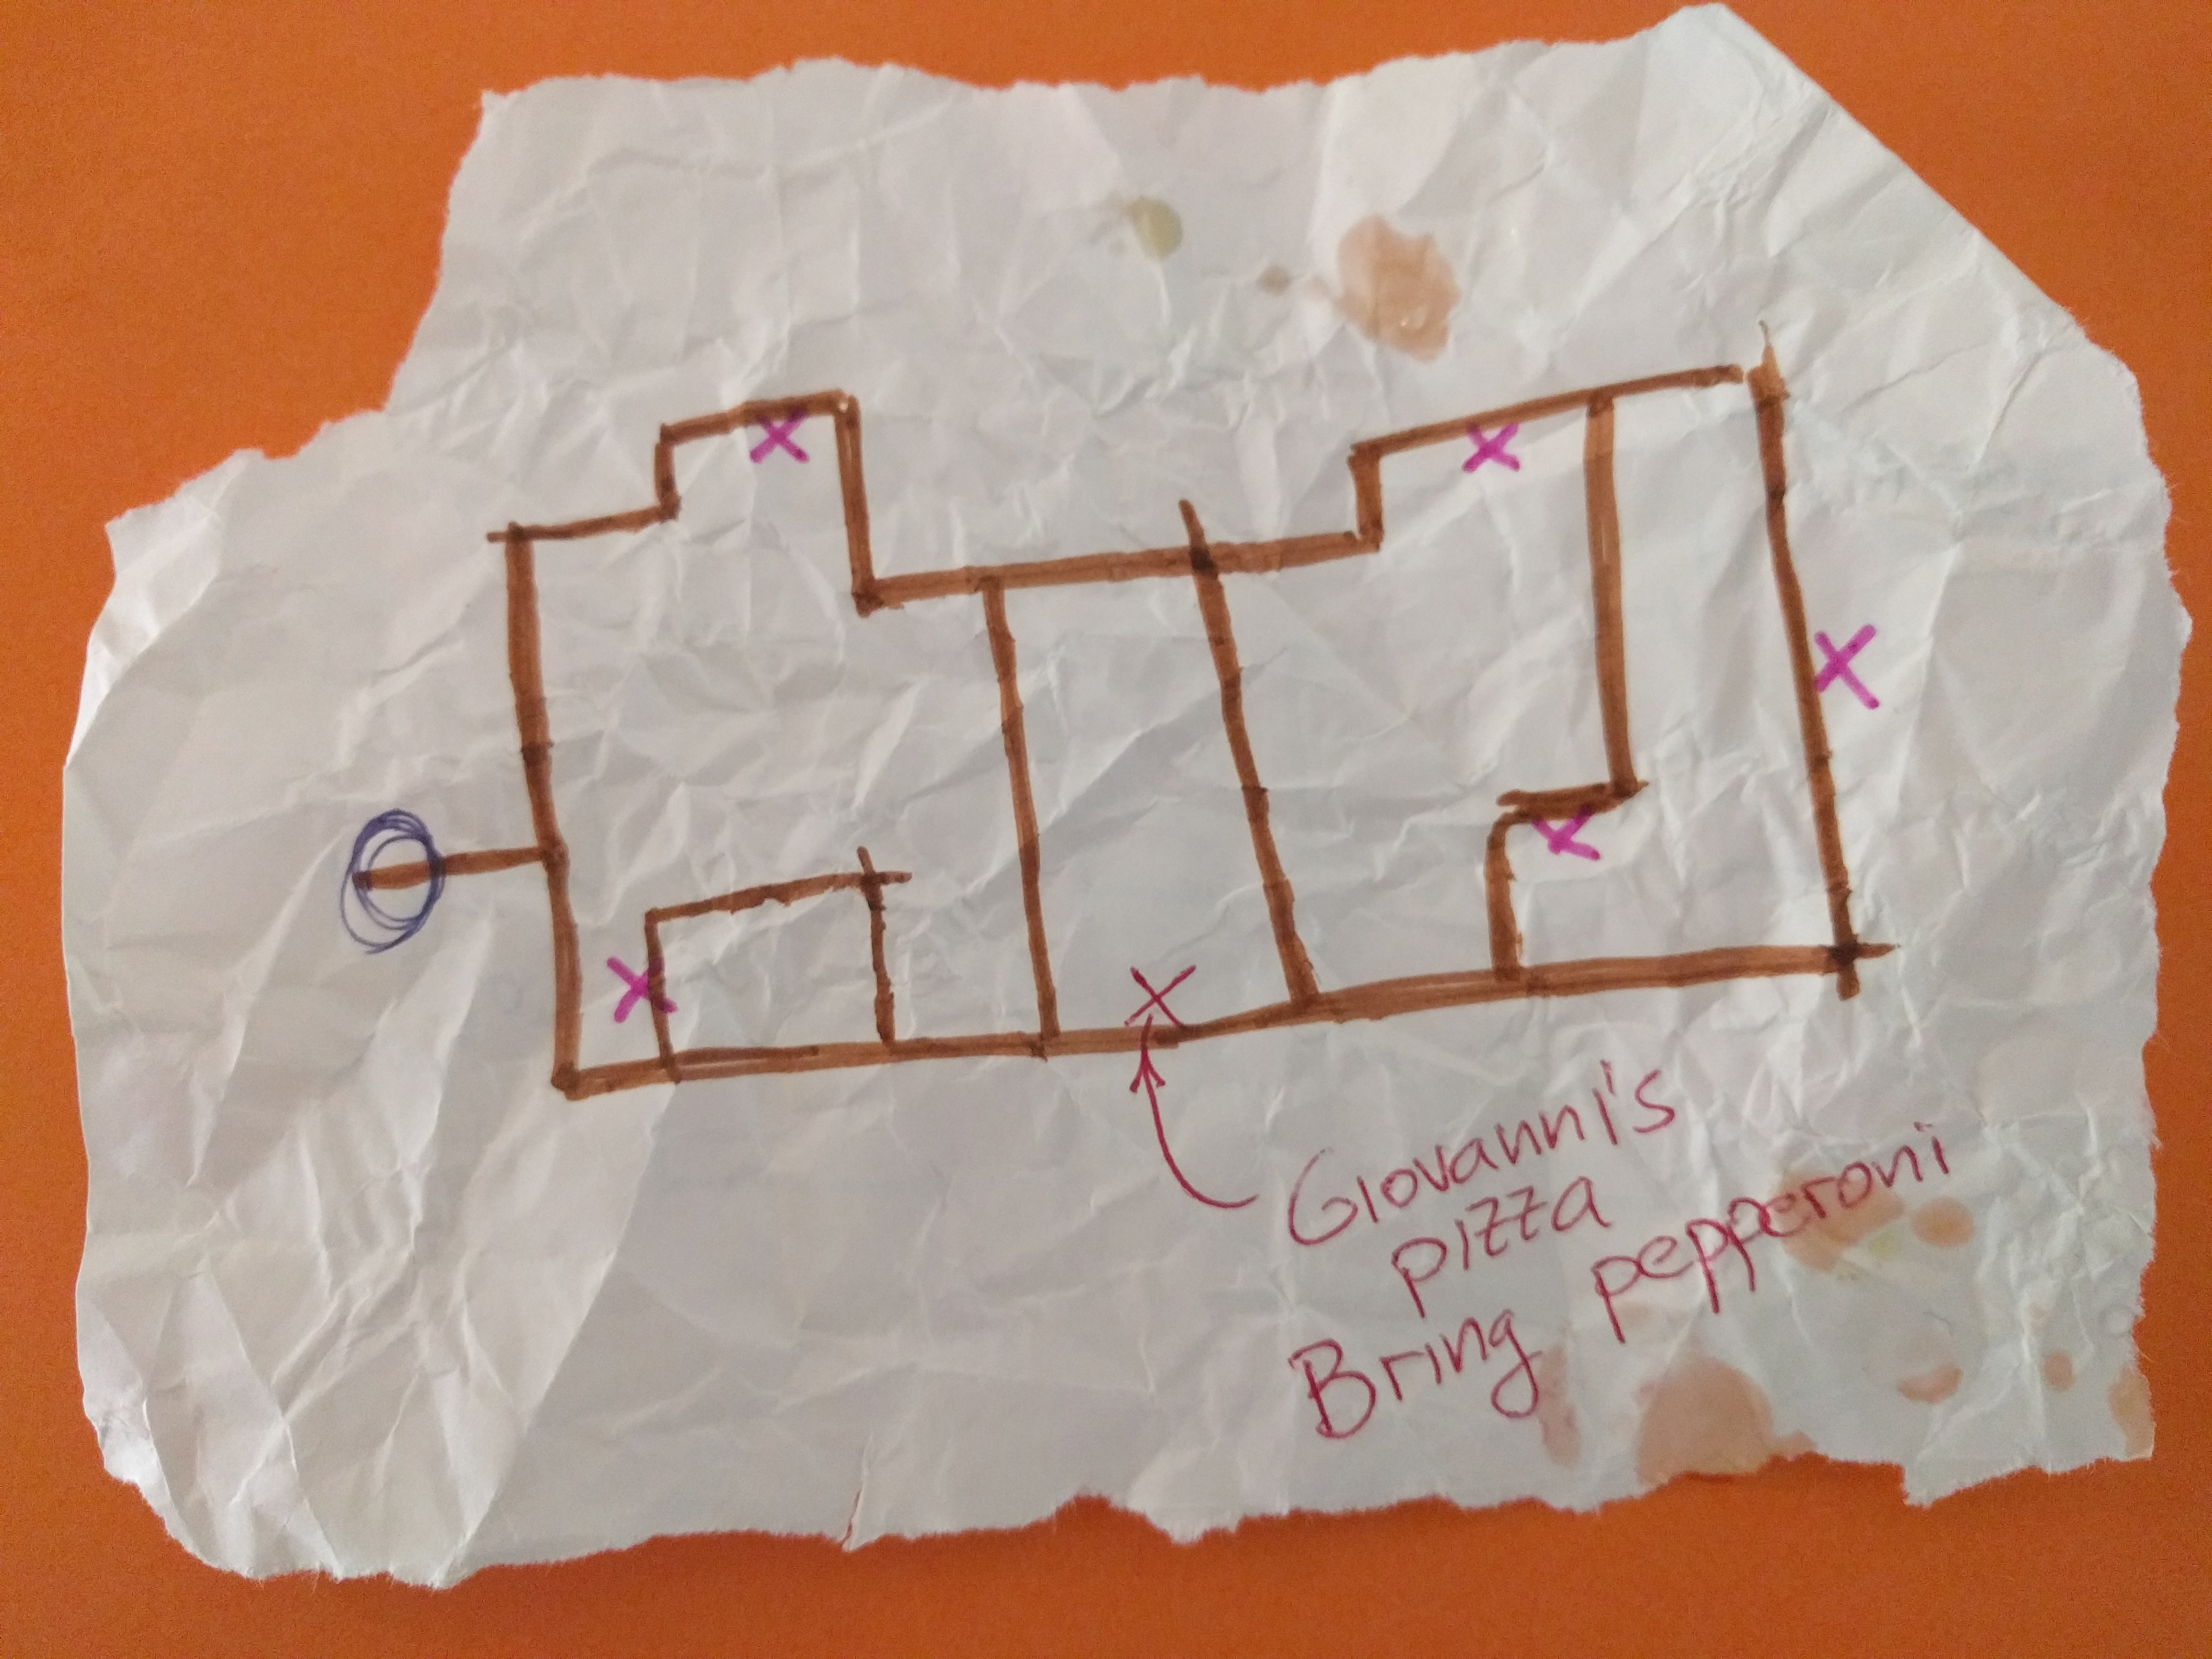 Giovanni's
pizza
Bring pepperoni